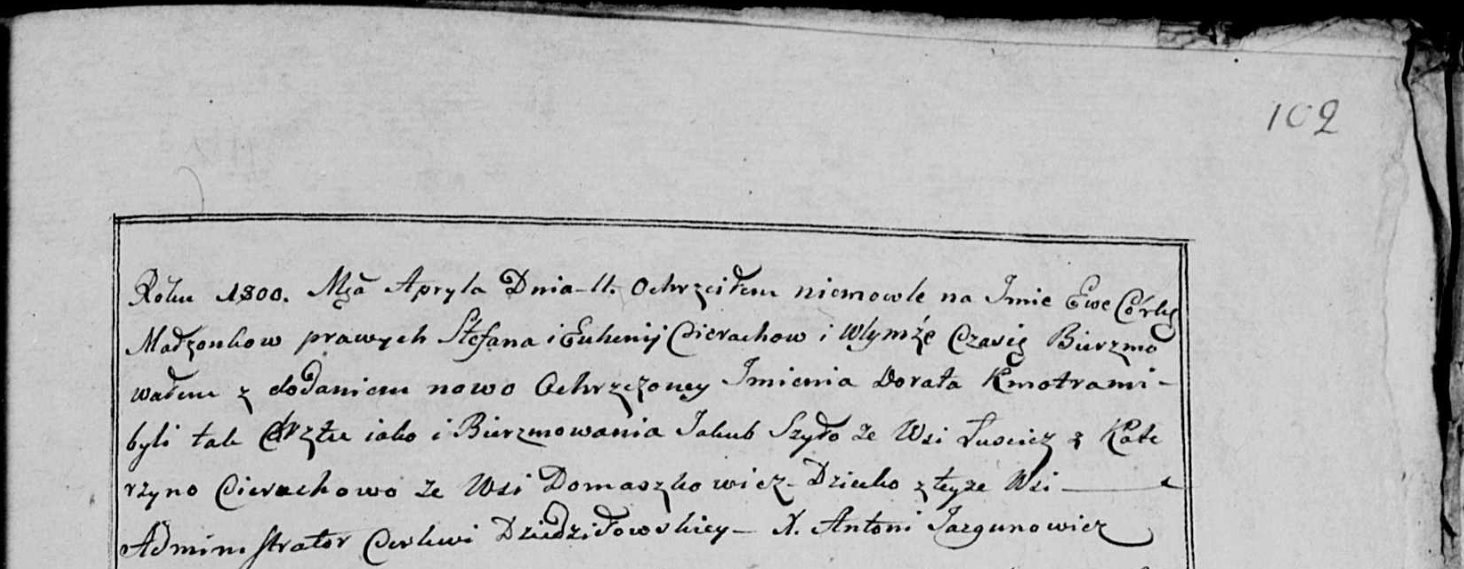 102
Roku 1800. Mca Apryla Dnia 11. Ochrzciłem niemowle na Imie Ewe Corkę
Madzonkow prawych Stefana i Euhenij Cierachow i Wtymże Czasię Bierzmo
wałem z dodaniem nowo Ochrzczoney Imienia Dorata Kmotrami-
byli tak Chrztu iako i Bierzmowania Jakub Szyło ze Wsi Łuscicz z Kate
rzyno Cierachowo ze Wsi Domaszkowicz- Dziecko z teyże Wsi
Administrator Cerkwi Dziedziłowskiey- X. Antoni Jazgunowicz